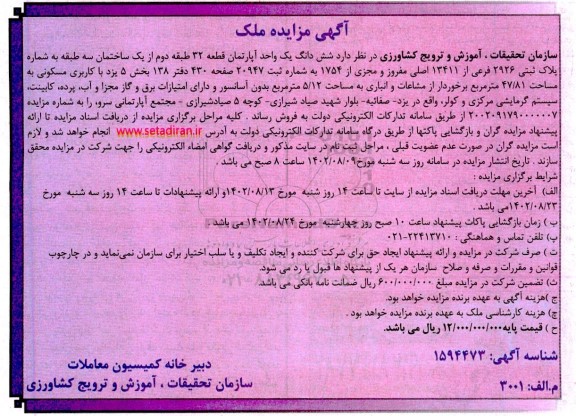 آگهی مزایده ملک
سازمان تحقیقات ، آموزش و ترویج کشاورزی در نظر دارد شش دانگ یک واحد آپارتمان قطعه ۳۲ طبقه دوم از یک ساختمان سه طبقه به شماره
پلاک ثبتی ۲۹۲۶ فرعی از ۱۳۴۱۱ اصلی مفروز و مجزی از ۱۷۵۴ به شماره ثبت ۲۰۹۴۷ صفحه ۴۳۰ دفتر ۱۳۸ بخش ۵ یزد با کاربری مسکونی به
مساحت ۴۷/۸۱ مترمربع برخوردار از مشاعات و انباری به مساحت ۵/۱۲ مترمربع بدون آسانسور و دارای امتیازات برق و گاز مجزا و آب، پرده، کابینت،
سیستم گرمایشی مرکزی و کولر، واقع در یزد- صفائیه- بلوار شهید صیاد شیرازی- کوچه ۵ صیادشیرازی - مجتمع آپارتمانی سرو، را به شماره مزایده
۲۰۰۲۰۹۱۷۹۰۰۰۰۰۰۷ از طریق سامانه تدارکات الکترونیکی دولت به فروش رساند . کلیه مراحل برگزاری مزایده از دریافت اسناد مزایده تا ارائه
پیشنهاد مزایده گران و بازگشایی پاکتها از طریق درگاه سامانه تدارکات الکترونیکی دولت به آدرس www.setadiran.ir انجام خواهد شد و لازم
است مزایده گران در صورت عدم عضویت قبلی ، مراحل ثبت نام در سایت مذکور و دریافت گواهی امضاء الکترونیکی را جهت شرکت در مزایده محقق
سازند . تاریخ انتشار مزایده در سامانه روز سه شنبه مورخ۱۴۰۲/۰۸/۰۹ ساعت ۸ صبح می باشد .
شرایط برگزاری مزایده :
الف) آخرین مهلت دریافت اسناد مزایده از سایت تا ساعت ۱۴ روز شنبه مورخ ۱۴۰۲/۰۸/۱۳و ارائه پیشنهادات تا ساعت ۱۴ روز سه شنبه مورخ
۱۴۰۲/۰۸/۲۳می باشد .
ب ) زمان بازگشایی پاکات پیشنهاد ساعت ۱۰ صبح روز چهارشنبه مورخ ۱۴۰۲/۰۸/۲۴ می باشد .
پ) تلفن تماس و هماهنگی : ۲۲۴۱۳۷۱۰-۰۲۱
ت ) صرف شرکت در مزایده و ارائه پیشنهاد ایجاد حق برای شرکت کننده و ایجاد تکلیف و یا سلب اختیار برای سازمان نمی‌نماید و در چارچوب
قوانین و مقررات و صرفه و صلاح سازمان هر یک از پیشنهاد ها قبول یا رد می شود.
ث) تضمین شرکت در مزایده مبلغ ۶۰۰/۰۰۰/۰۰۰ ریال ضمانت نامه بانکی می باشد.
ج)هزینه آگهی به عهده برنده مزایده خواهد بود.
چ) هزینه کارشناسی ملک به عهده برنده مزایده خواهد بود .
ح ) قیمت پایه۱۲/۰۰۰/۰۰۰/۰۰۰ ریال می باشد.
شناسه آگهی: ۱۵۹۴۴۷۳
م.الف: ۳۰۰۱
دبیر خانه کمیسیون معاملات
سازمان تحقیقات ، آموزش و ترویج کشاورزی